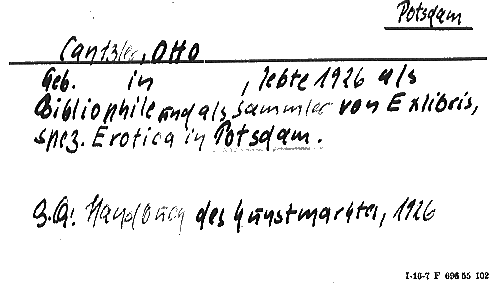 Potsdam
Cantzler, Otto
Geb. in , lebte 1926 als
Bibliophile und als Sammler von Exlibris,
spez. Erotica in Potsdam.
s.a. Handbuch des Kunstmarktes, 1926
I-16-7 F 696 55 102